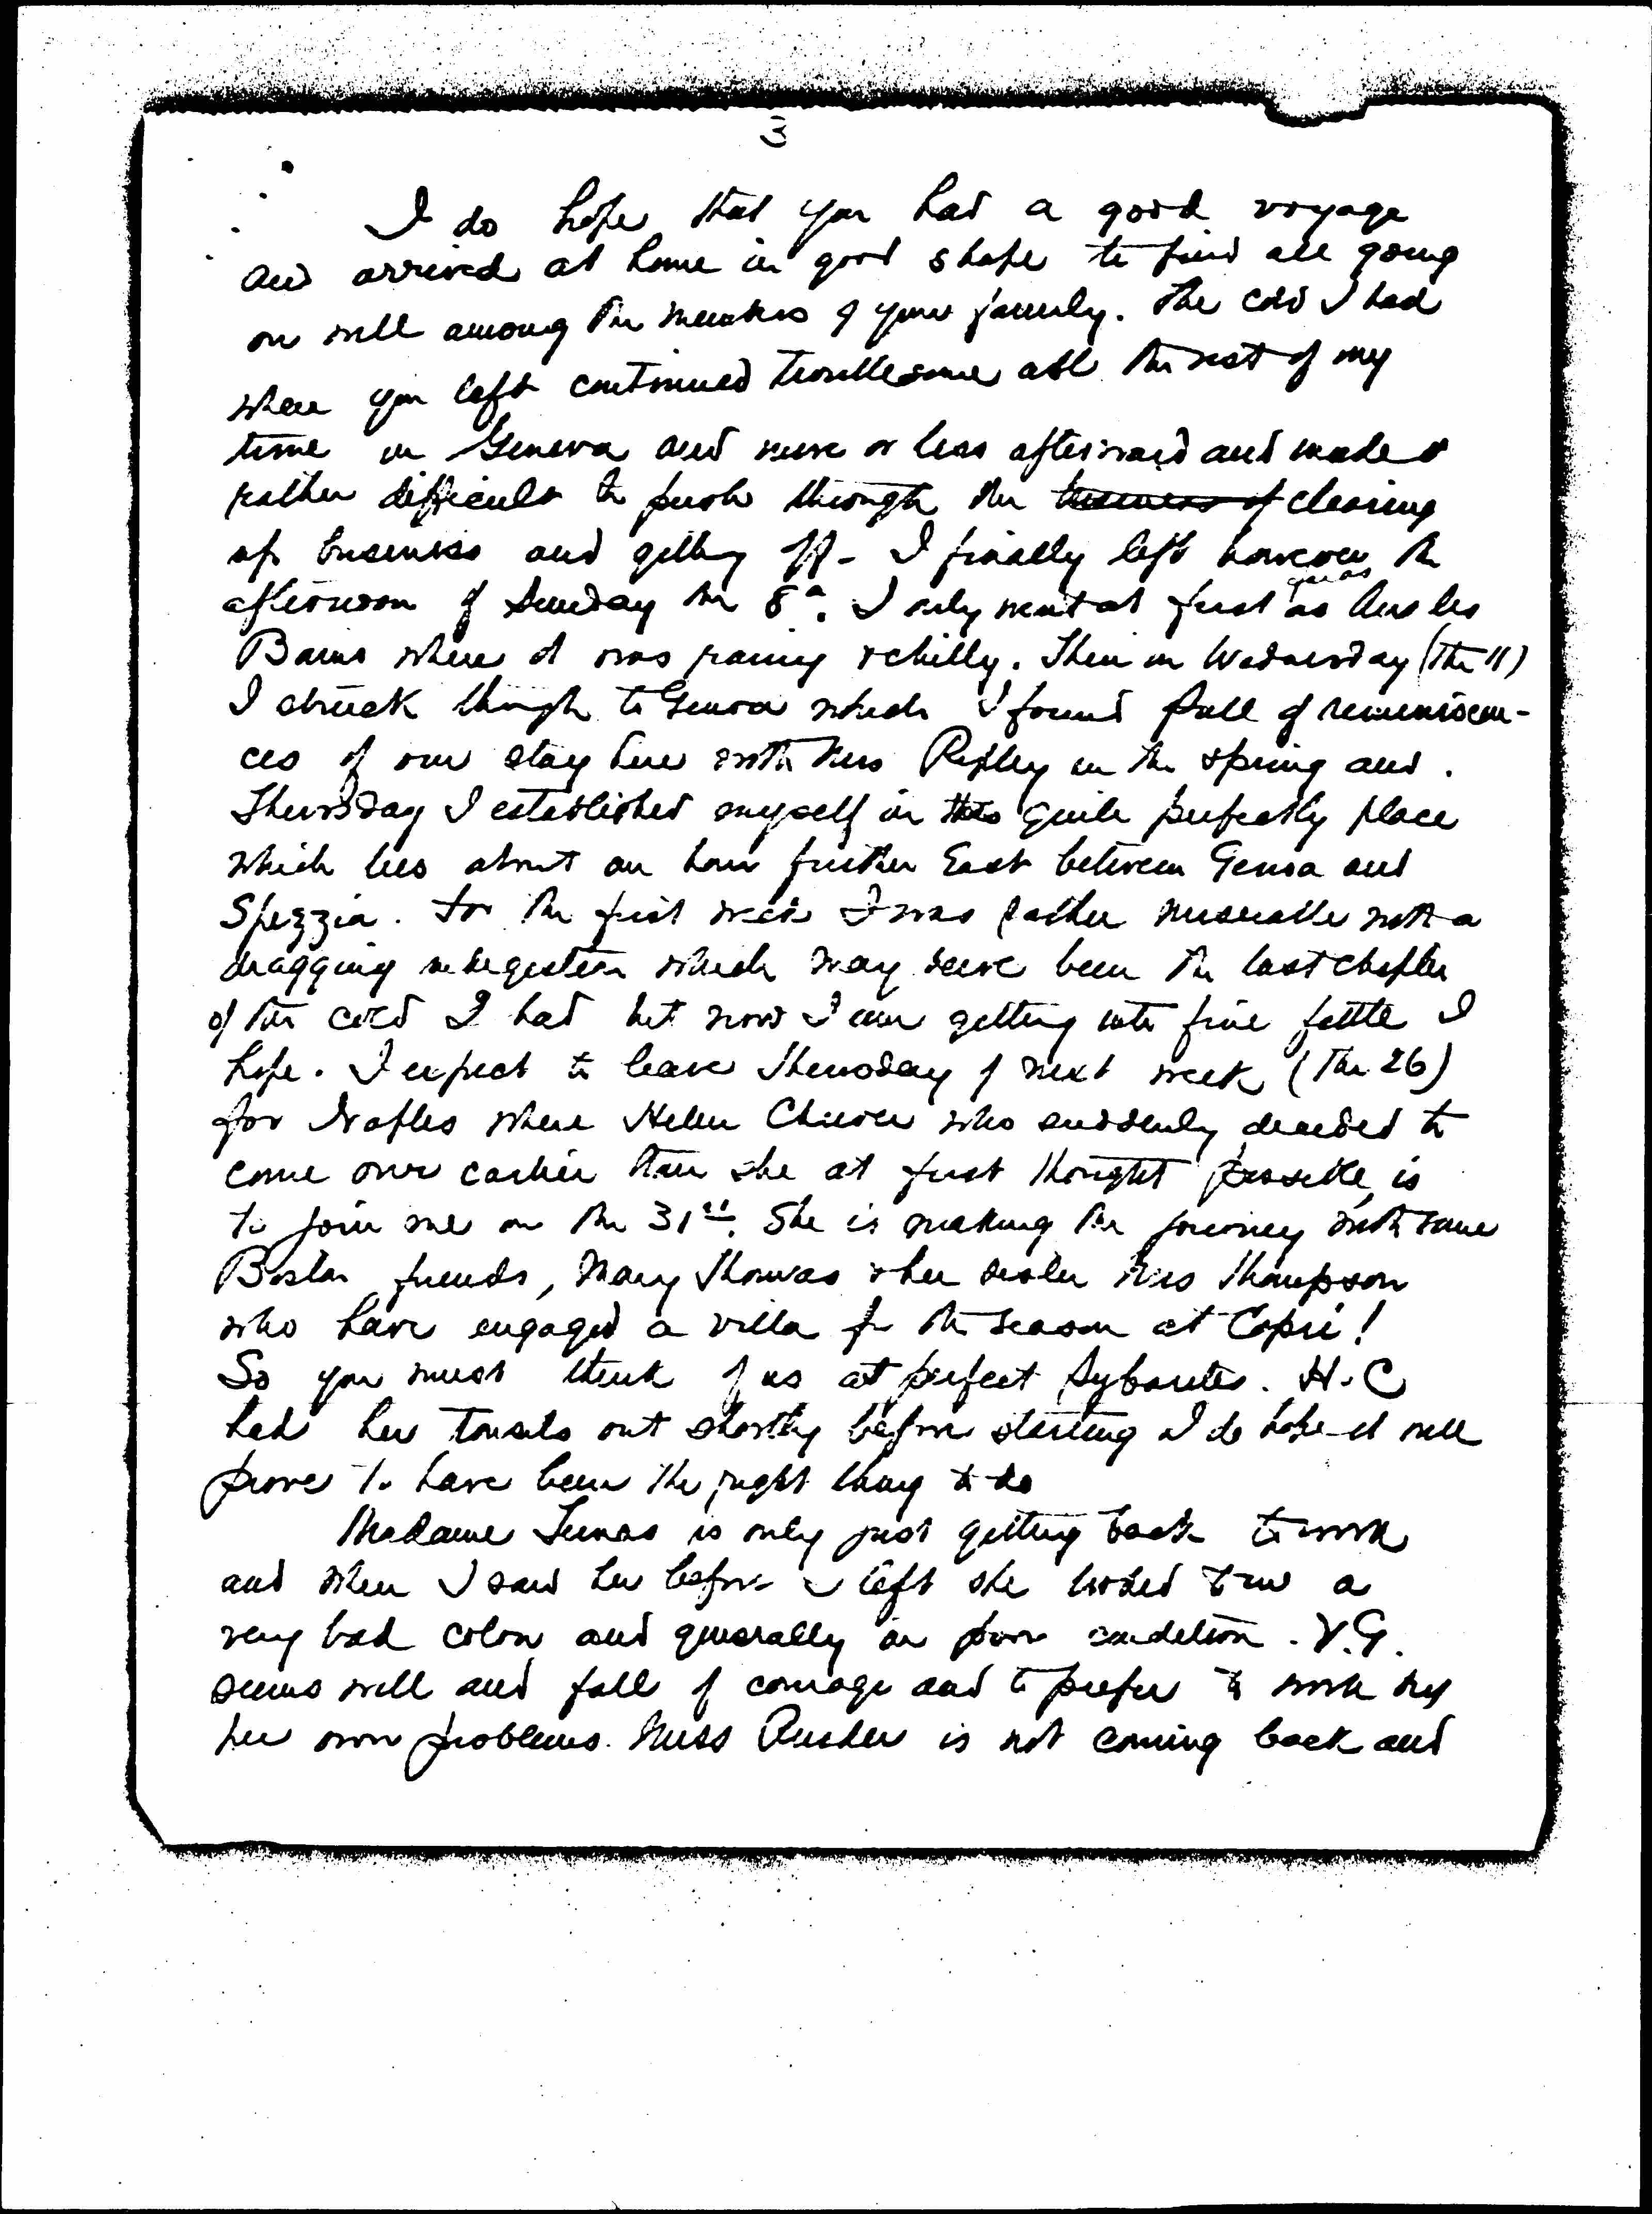 3
I do hope that you had a good voyage
and arrived at home in good shape to find all going
on well among the members of your family. The cold I had
when you left continued troublesome all the rest of my
time in Geneva and more or less afterward and made it
rather difficult to push through the business of clearing
up business and getting off - I finally left however the
afternoon of Sunday the 8th. I only went at first as far as Aix les
Bains where it was rainy & chilly. Then on Wednesday (the 11)
I struck through to Genoa which I found full of reminiscen-
ces of our stay here with Miss Ripley in the spring and
Thursday I established myself in this quite perfectly place
which lies about an hour further East between Genoa and
Spezzia. For the first week I was rather miserable with a
dragging indigestion which may have been the last chapter
of the cold I had but now I am getting into fine fettle I
hope. I expect to leave Thursday of next week (the 26)
for Naples where Helen Cheever who suddenly decided to
come over earlier than she at first thought possible, is
to join me on the 31st. She is making the journey with some
Boston friends, Mary Thomas & her sister Mrs Thompson
who have engaged a villa for the season at Capri!
So you must think of us at perfect Sybarites. H.C
had her tonsils out shortly before starting I do hope it will
prove to have been the right thing to do
Madame is only just getting back to work
and when I saw her before I left she looked to me a
very bad color and generally in poor condition. V.G.
seems well and full of courage and to prefer to work by
her own problems. Miss is not coming back and